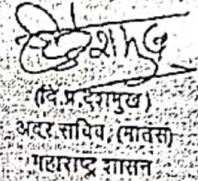 (वि.प्र.देशमुख)
अवर सचिव, (मातंस)
महाराष्ट्र शासन